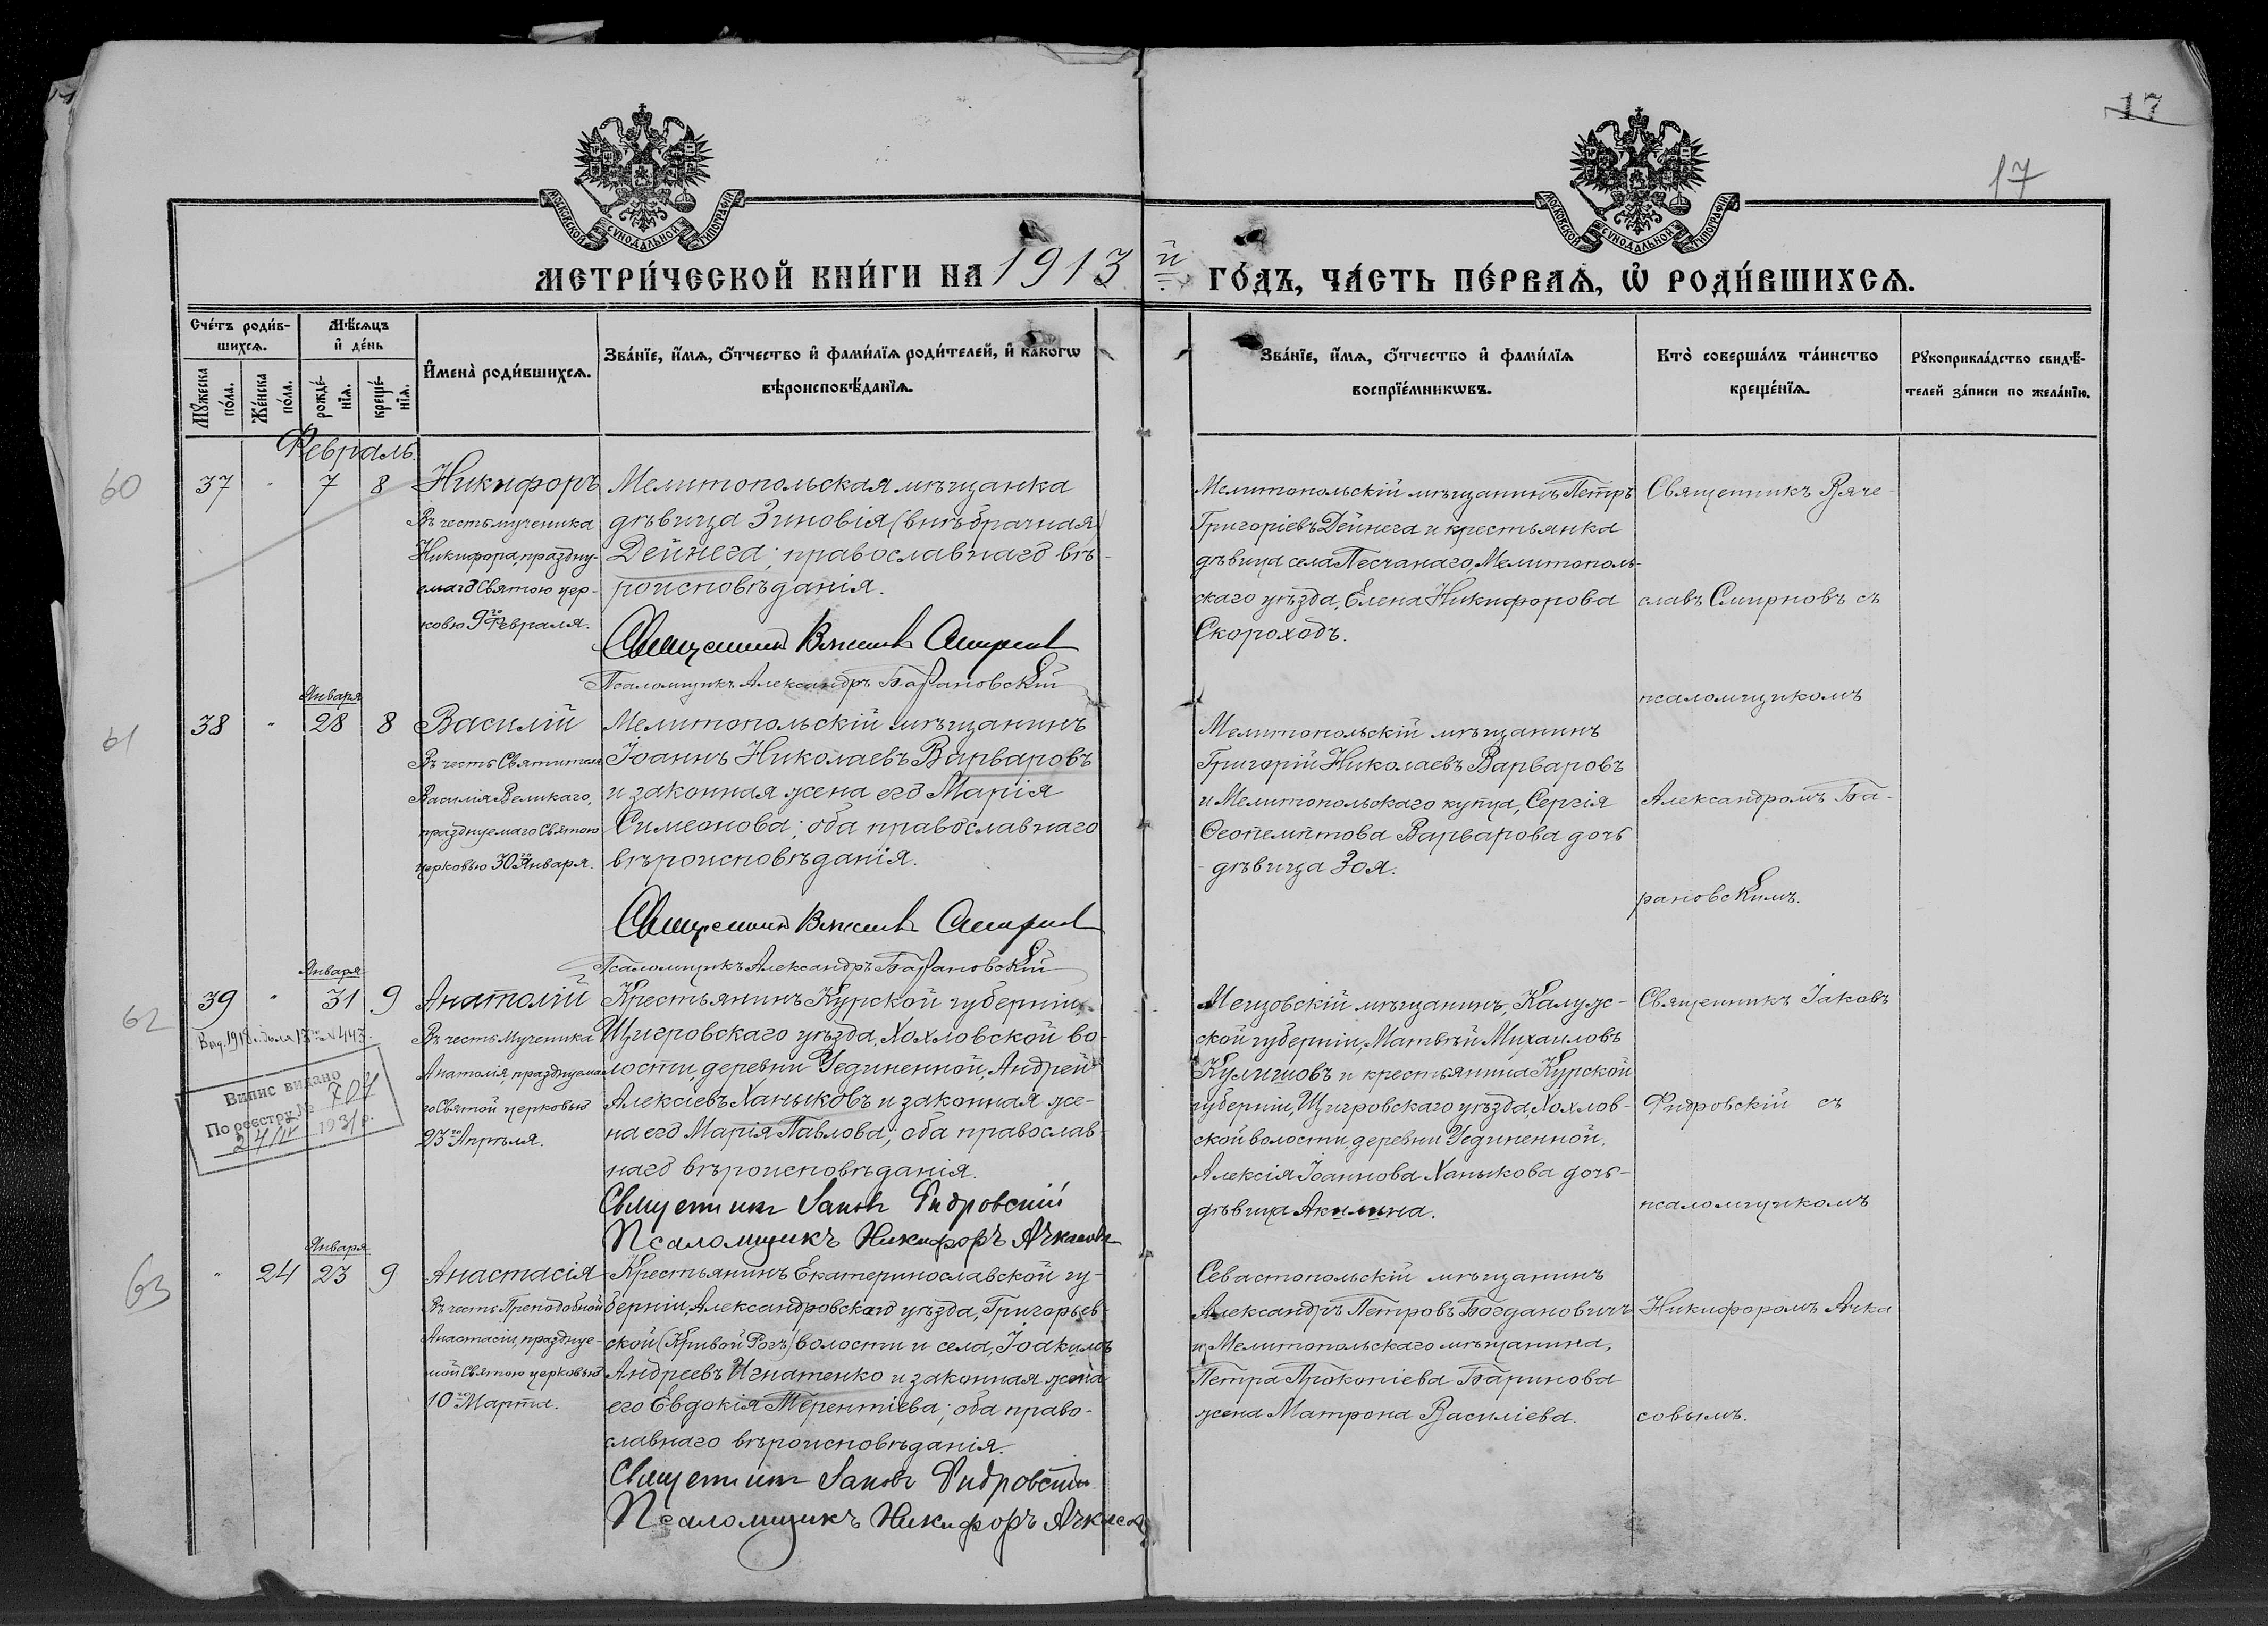 17
17
МОСКОВСКОЙ СѴНОДАЛЬНОЙ ТИПОГРАФІИ
МОСКОВСКОЙ СѴНОДАЛЬНОЙ ТИПОГРАФІИ
МЕТРИ́ЧЕСКОЙ КНИ́ГИ НА 1913 й ГО́ДЪ, ЧА́СТЬ ПЕ́РВАѦ, Ѡ҆ РОДИ́ВШИХСѦ.
Сче́тъ роди́в-
шихсѧ.
Мꙋ́жеска
по́ла.
Же́нска
по́ла.
Мѣ́сѧцъ
и҆ де́нь
рожде́-
нїѧ.
креще́-
нїѧ.
И҆мена̀ роди́вшихсѧ.
Зва́нїе, и҆́мѧ, ѻ҆́тчество и҆ фами́лїѧ роди́телей, и҆ како́гѡ
вѣроисповѣ́данїѧ.
Зва́нїе, и҆́мѧ, ѻ҆́тчество и҆ фами́лїѧ
воспрїе́мникѡвъ.
Кто̀ соверша́лъ та́инство
креще́нїѧ.
Рꙋкоприкла́дство свидѣ́-
телей за́писи по жела́нїю.
Февраль.
60
37 " 7 8
Никифоръ
Въ честь мученика
Никифора, праздну-
емаго Святою цер-
ковью 9го Февраля.
Мелитопольская мѣщанка
дѣвица Зиновія (внѣбрачная)
Дейнега; православнаго вѣ-
роисповѣданія.
Священникъ Вячеславъ Смирновъ
Псаломщикъ Александръ Барановскій
Мелитопольскій мѣщанинъ Петръ
Григоріевъ Дейнега и крестьянка
дѣвица села Песчанаго, Мелитополь-
скаго уѣзда, Елена Никифорова
Скороходъ.
Священникъ Вяче-
славъ Смирновъ съ
псаломщикомъ
Александромъ Ба-
рановскимъ.
61
Января
38 " 28 8
Василій
Въ честь Святителя
Василія Великаго,
празднуемаго Святою
церковью 30го Января.
Мелитопольскій мѣщанинъ
Іоаннъ Николаевъ Варваровъ
и законная жена его Марія
Симеонова; оба православнаго
вѣроисповѣданія.
Священникъ Вячеславъ Смирновъ
Псаломщикъ Александръ Барановскій
Мелитопольскій мѣщанинъ
Григорій Николаевъ Варваровъ
и Мелитопольскаго купца, Сергія
Ѳеопемптова Варварова дочь
- дѣвица Зоя.
62
Января
39 " 31 9
№ 443.
Випис видано
По реєстру № 707
24/IV 1931 р.
Анатолій
Въ честь Мученика
Анатолія, празднуема-
го Святой церковью
23го Апрѣля.
Крестьянинъ Курской губерніи,
Щигровскаго уѣзда, Хохловской во-
лости, деревни Уединенной, Андрей
Алексіевъ Ханыковъ и законная же-
на его Марія Павлова; оба православ-
наго вѣроисповѣданія.
Священникъ Іаковъ Фидровскій
Псаломщикъ Никифоръ Ачкасовъ
Мещовскій мѣщанинъ, Калуж-
ской губерніи, Матвѣй Михаиловъ
Кулишовъ и крестьянина Курской
губерніи, Щигровскаго уѣзда, Хохлов-
ской волости, деревни Уединенной,
Алексія Іоаннова Ханыкова дочь -
дѣвица Акилина.
Священникъ Іаковъ
Фидровскій съ
псаломщикомъ
Никифоромъ Ачка
совымъ.
63
Января
" 24 23 9
Анастасія
Въ честь Преподобной
Анастасіи, праздnue-
мой Святою церковью
10го Марта.
Крестьянинъ Екатеринославской гу-
берніи, Александровскаго уѣзда, Григорьев-
ской (Кривой Рогъ) волости и села, Іоакимъ
Андреевъ Игнатенко и законная жена
его Евдокія Терентіева; оба право-
славнаго вѣроисповѣданія.
Священникъ Іаковъ Фидровскій
Псаломщикъ Никифоръ Ачкасовъ
Севастопольскій мѣщанинъ
Александръ Петровъ Богдановичъ
и Мелитопольскаго мѣщанина,
Петра Прокопіева Баринова
жена Матрона Василіева.